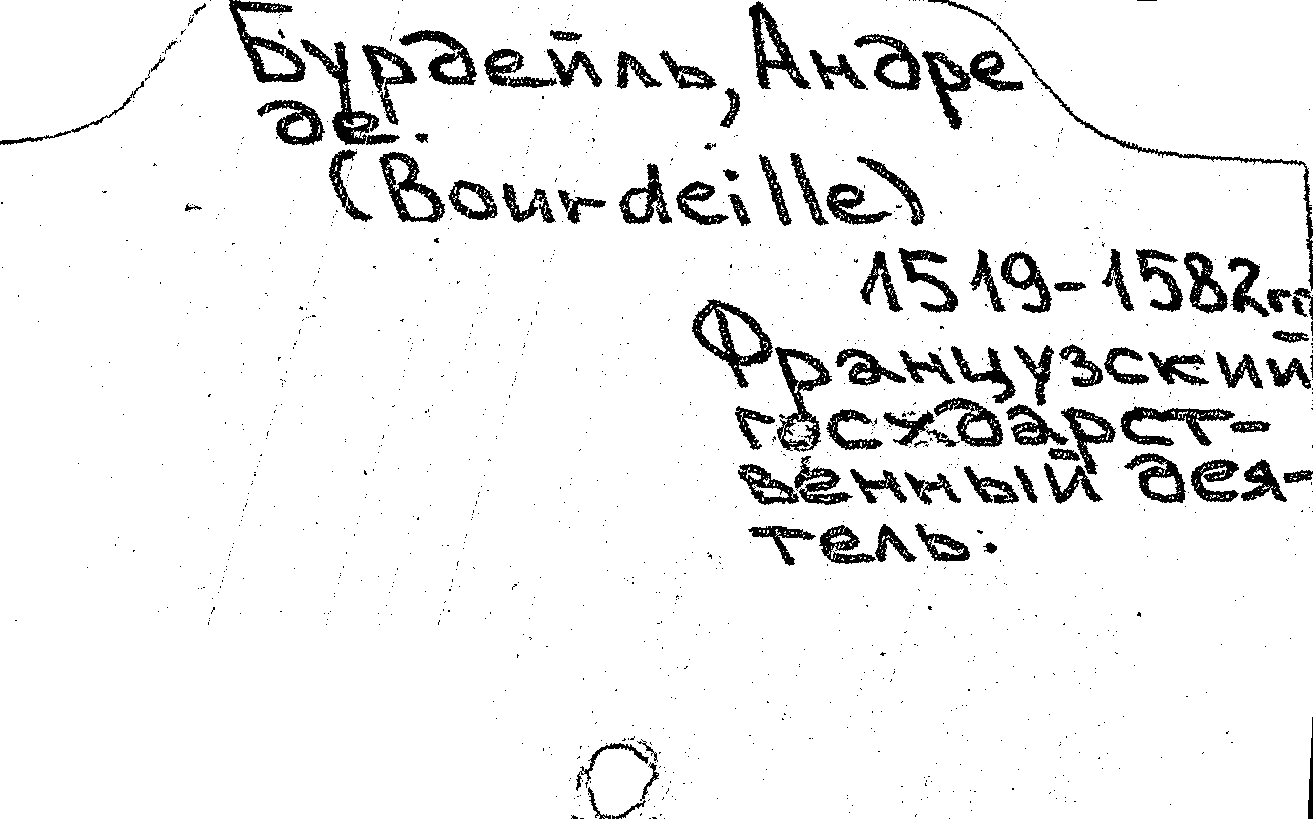 Бурдейль, Андре
де.
(Bourdeille)
1519-1582гг
Французский
госхдарст-
венный дея-
тель.